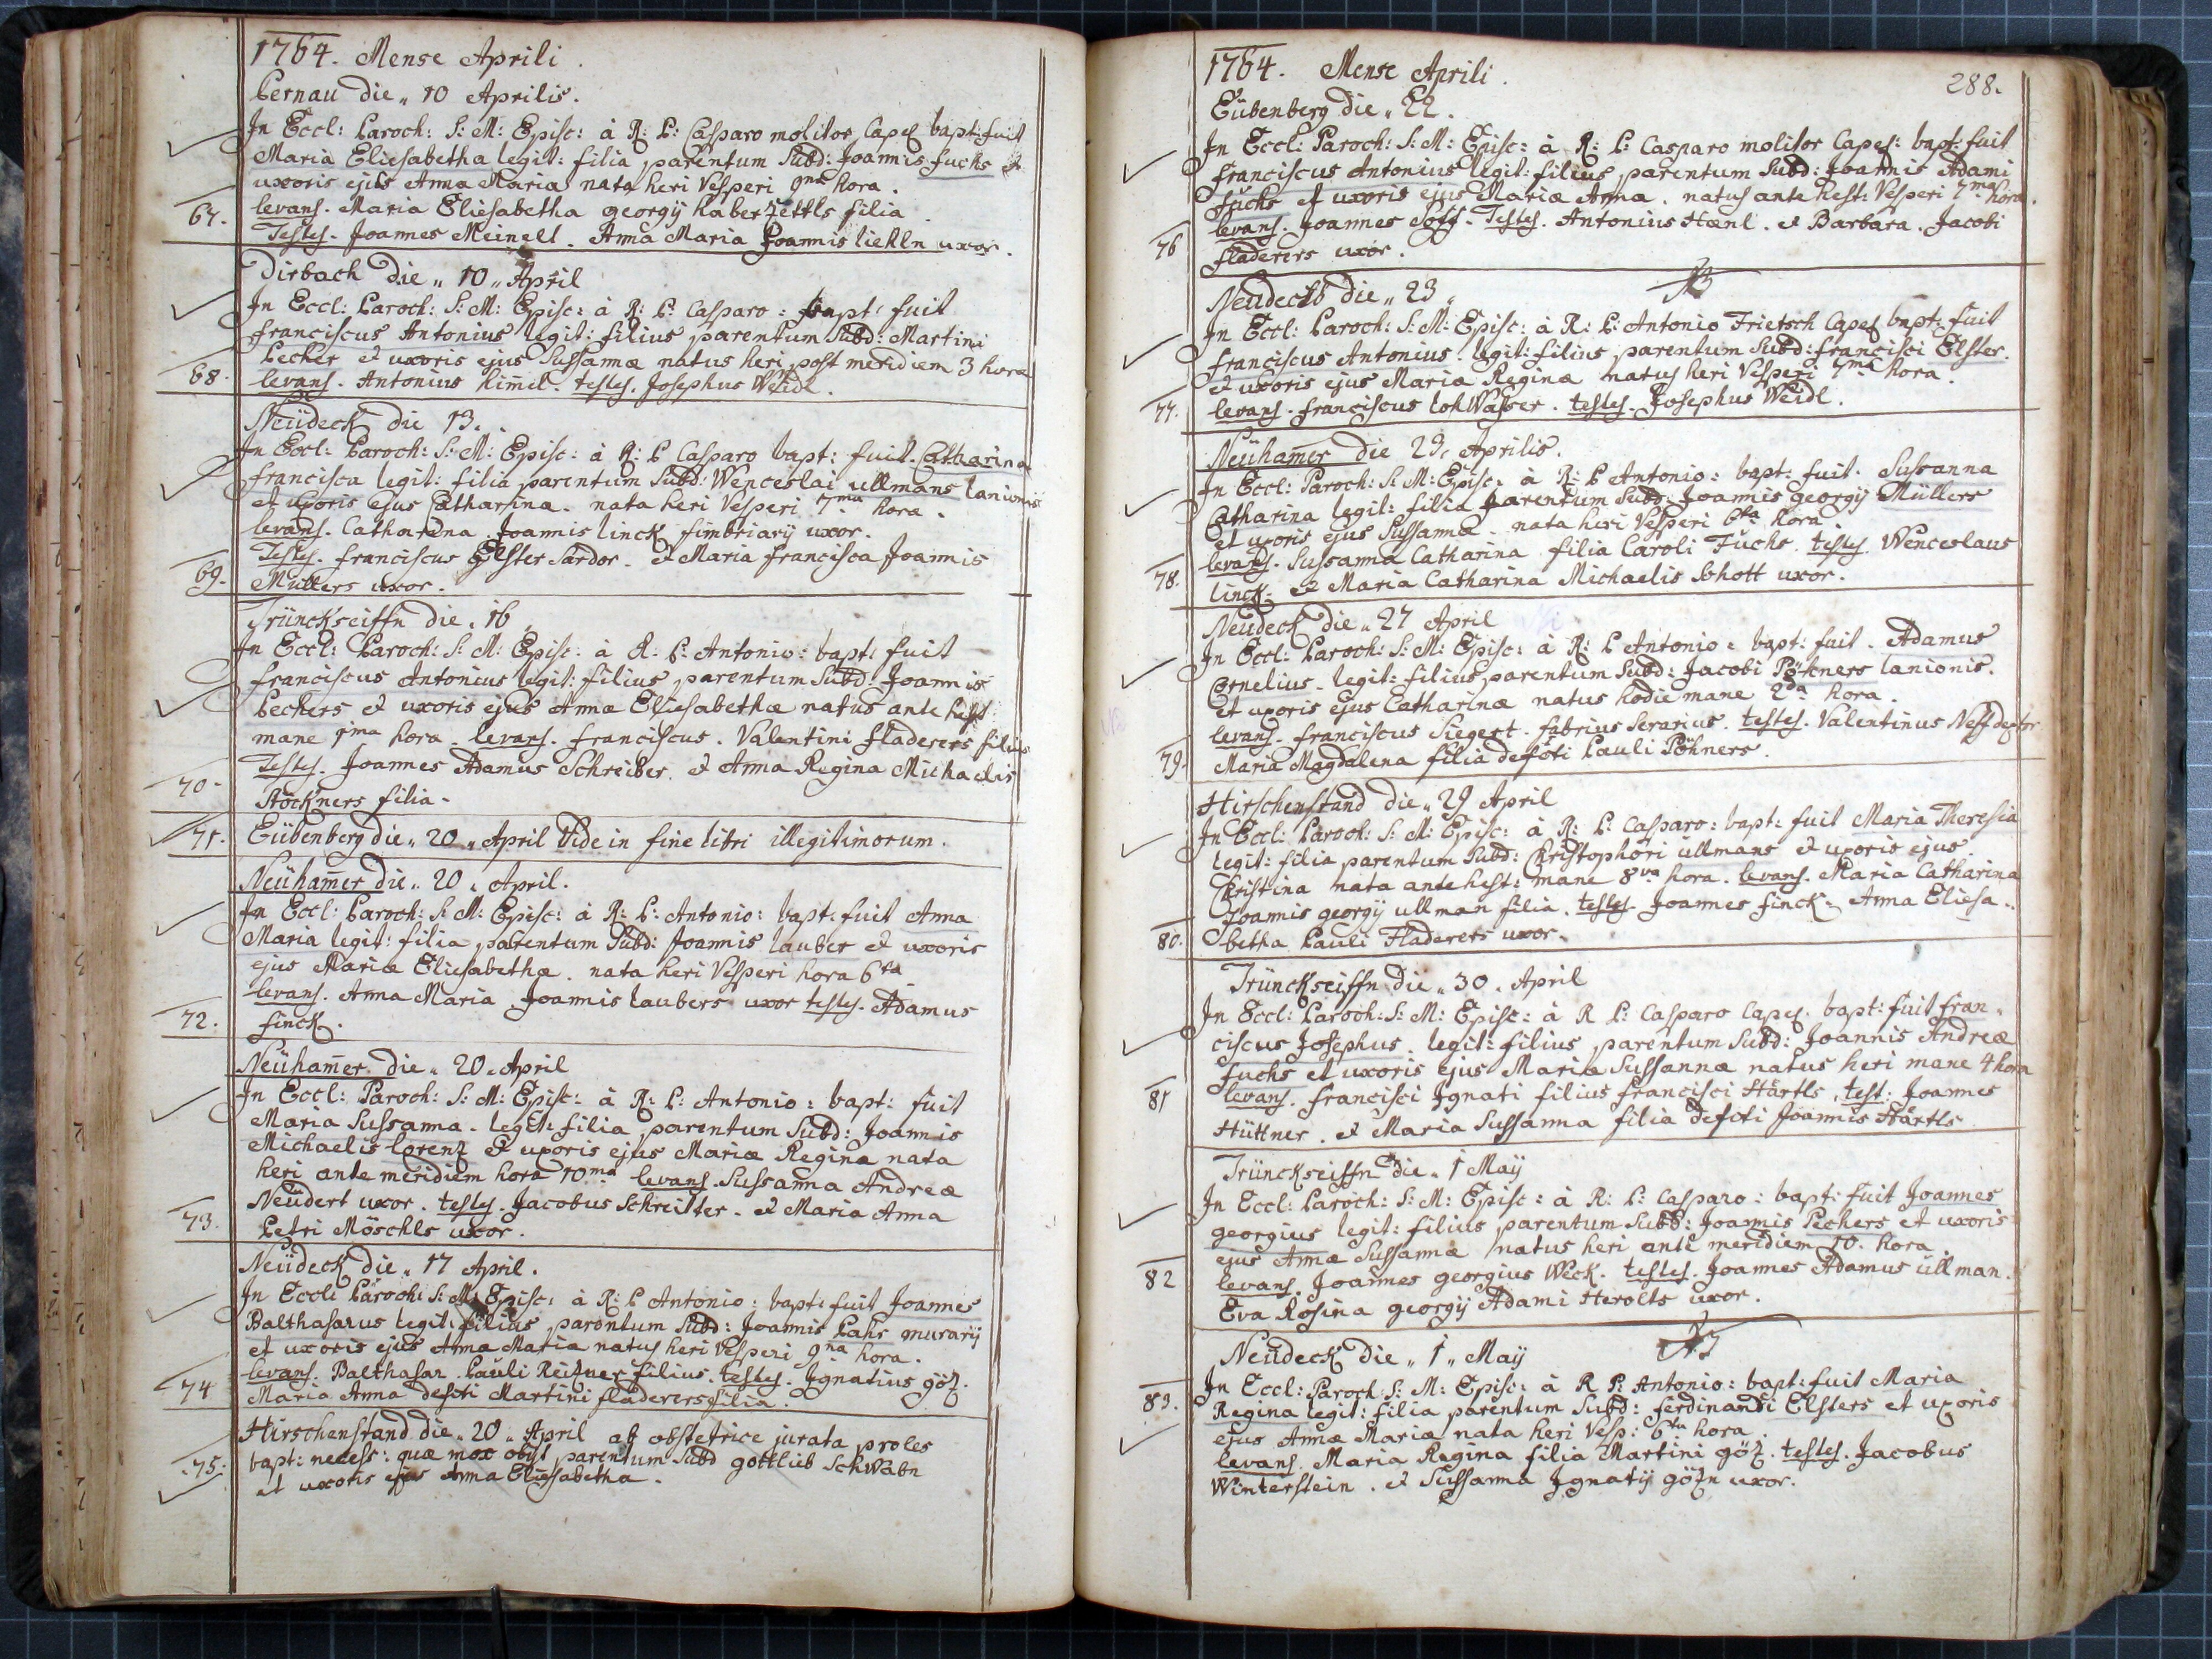 1764. Mense Aprili.
Bernau die „ 10 Aprilis.
In Eccl: Paroch: S: M: Episc: à R: P: Casparo molitor Capel bapt: fuit
Maria Eliesabetha legit: filia parentum Subd: Joannis fuchs et
uxoris ejus Anna Maria nata heri Vesperi 9na hora.
levans. Maria Eliesabetha georgij haberzettls filia.
67.
Testes. Joannes Meinell. Anna Maria Joannis liehln uxor.
Dirbach die „ 10 „ April
In Eccl: Paroch: S: M: Episc: à R: P: Casparo: bapt: fuit
franciscus Antonius legit: filius parentum Subd: Martini
Pecher et uxoris ejus Sussannæ natus heri post meridiem 3 hora
68.
levans. Antonius himel. testes. Josephus Weidl.
Neüdeck die 13.
In Eccl: Paroch: S: M: Episc: à R: P Casparo bapt: fuit. Catharina
francisca legit: filia parentum Subd: Wenceslai ullmans lanionis
et uxoris ejus Catharina. nata heri Vesperi 7ma hora.
levans. Catharina. Joannis linck fimbriarij uxor.
Testes. franciscus Elster Sardor. et Maria francisca Joannis
69.
Müllers uxor.
Trünckseiffn die. 16
In Eccl: Paroch: S: M: Episc: à R: P: Antonio: bapt: fuit
franciscus Antonius legit: filius parentum Subd: Joannis
Pechers et uxoris ejus Annæ Eliesabethæ natus ante hest:
mane 1ma hora. levans. franciscus. Valentini fladerers filius
Testes. Joannes Adamus Schreiber. et Anna Regina Michaelis
70.
Stöckners filia.
71.
Eübenberg die „ 20 „ April Vide in fine libri illegitimorum.
Neühamer die „ 20 „ April.
In Eccl: Paroch: S: M: Episc: à R: P: Antonio: bapt: fuit Anna
Maria legit: filia parentum Subd: Joannis lauber et uxoris
ejus Mariæ Eliesabethæ. nata heri Vesperi hora 6ta
levans. Anna Maria Joannis laubers uxor testes. Adamus
72.
finck.
Neühamer die „ 20 „ April
In Eccl: Paroch: S: M: Episc: à R: P: Antonio: bapt: fuit
Maria Sussanna. legit: filia parentum Subd: Joannis
Michaelis lorenz et uxoris ejus Mariæ Regina nata
heri ante meridiem hora 10ma levans. Sussanna Andreæ
Neüdert uxor. testes. Jacobus Schreitter. et Maria Anna
73.
Petri Möschls uxor.
Neüdeck die „ 17 April.
In Eccl: Paroch: S: M: Episc: à R: P Antonio: bapt: fuit Joannes
Balthasarus legit: filius parentum Subd: Joannis Pahr murarij
et uxoris ejus Anna Maria natus heri Vesperi 9na hora.
levans. Balthasar Pauli Reitzner filius. testes. Ignatius götz.
74
Maria Anna defoti Martini fladerers filia.
Hirschenstand die „ 20 „ April ab obstetrice jurata proles
75.
bapt: necess: quæ mox obijt parentum Subd gottlieb Schwabn
et uxoris ejus Anna Eliesabetha.
1764. Mense Aprili.
288.
Eübenberg die „ 22.
In Eccl: Paroch: S: M: Episc: à R: P: Casparo molitor Capel: bapt: fuit
franciscus Antonius legit: filius parentum Subd: Joannis Adami
fuchs et uxoris ejus Mariæ Anna. natus ante hest: Vesperi 7ma hora.
levans. Joannes Löff. Testes. Antonius Hænl. et Barbara. Jacobi
76
fladerers uxor.
Neüdeck die „ 23 „
In Eccl: Paroch: S: M: Episc: à R: P: Antonio Frietsch Capel bapt: fuit
franciscus Antonius. legit: filius parentum Subd: francisci Elster.
et uxoris ejus Mariæ Reginæ natus heri Vesperi 7ma hora.
77.
levans. franciscus lohWasser. testes. Josephus Weidl.
Neühamer die 23. Aprilis.
In Eccl: Paroch: S: M: Episc: à R: P Antonio: bapt: fuit. Sussanna
Catharina legit: filia parentum Subd: Joannis georgij Müllers
et uxoris ejus Sussannæ. nata heri Vesperi 6ta hora.
levans. Sussanna Catharina filia Caroli Fuchs. testes. Wenceslaus
78.
linck. et Maria Catharina Michaelis Schott uxor.
Neüdeck die „ 27 April
In Eccl: Paroch: S: M: Episc: à R: P Antonio: bapt: fuit. Adamus
Cornelius. legit: filius parentum Subd: Jacobi Pöhners lanionis.
et uxoris ejus Catharinæ natus hodie mane 2da hora.
levans. franciscus Siegert. fabrius Serarius. testes. Valentinus
79.
Maria Magdalena filia defoti Pauli Pöhners.
Hirschenstand die „ 29 April
In Eccl: Paroch: S: M: Episc: à R: P: Casparo: bapt: fuit Maria Theresia
legit: filia parentum Subd: Christophori ullmans et uxoris ejus
Christina nata ante hest: mane 8va hora. levans. Maria Catharina
Joannis georgij ullman filia. testes. Joannes finck. Anna Eliesa„
80.
betha Pauli Fladerers uxor.
Trünckseiffn die „ 30. April
In Eccl: Paroch: S: M: Episc: à R P: Casparo Capel. bapt: fuit fran„
ciscus Josephus. legit: filius parentum Subd: Joannis Andreæ
fuchs et uxoris ejus Mariæ Sussannæ natus heri mane 4 hora
81
levans. francisci Ignati filius francisci Härtls. test: Joannes
Hüttner. et Maria Sussanna filia defoti Joannis Härtls
Trünckseiffn die „ 1 Maij
In Eccl: Paroch: S: M: Episc: à R: P: Casparo: bapt: fuit Joannes
georgius legit: filius parentum Subd: Joannis Pechers et uxoris
ejus Annæ Sussannæ natus heri ante meridiem 10. hora.
82
levans. Joannes georgius Weck. testes. Joannes Adamus ullman.
Eva Rosina georgij Adami Herolts uxor.
Neüdeck die „ 1 „ Maij
83.
In Eccl: Paroch S: M: Episc: à R P: Antonio: bapt: fuit Maria
Regina legit: filia parentum Subd: ferdinandi Elsters et uxoris
ejus Annæ Mariæ nata heri Vesp: 6ta hora.
levans. Maria Regina filia Martini götz. testes. Jacobus
Winterstein. et Sussanna Ignatij götzn uxor.